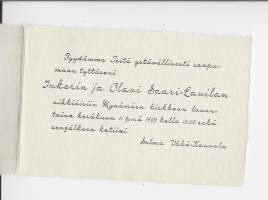 Pyydämme Teitä ystävällisesti saapu-
maan tyttäreni
Inkerin ja Olavi Saari-Lavilan
vihkiäisiin Mynämäen kirkkoon lauan-
taina kesäkuun 11 p:nä 1949 kello 15.00 sekä
senjälkeen kotiini
Selma Vähä-Kouvola